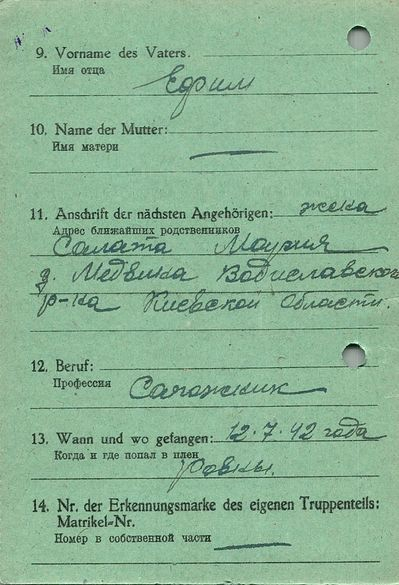 9. Vorname des Vaters.
Имя отца
Ефим
10. Name der Mutter:
Имя матери
11. Anschrift der nächsten Angehörigen: жена
Адрес ближайших родственников
Салата Мария
д. Медвика Водиславского
р-ка Киевской Области.
12. Beruf:
Профессия
Сапожник
13. Wann und wo gefangen: 12.7.42 года
Когда и где попал в плен
14. Nr. der Erkennungsmarke des eigenen Truppenteils:
Matrikel-Nr.
Номер в собственной части